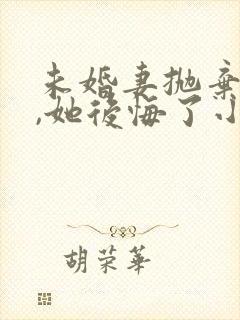 未婚妻抛棄
,她後悔了小
胡荣華